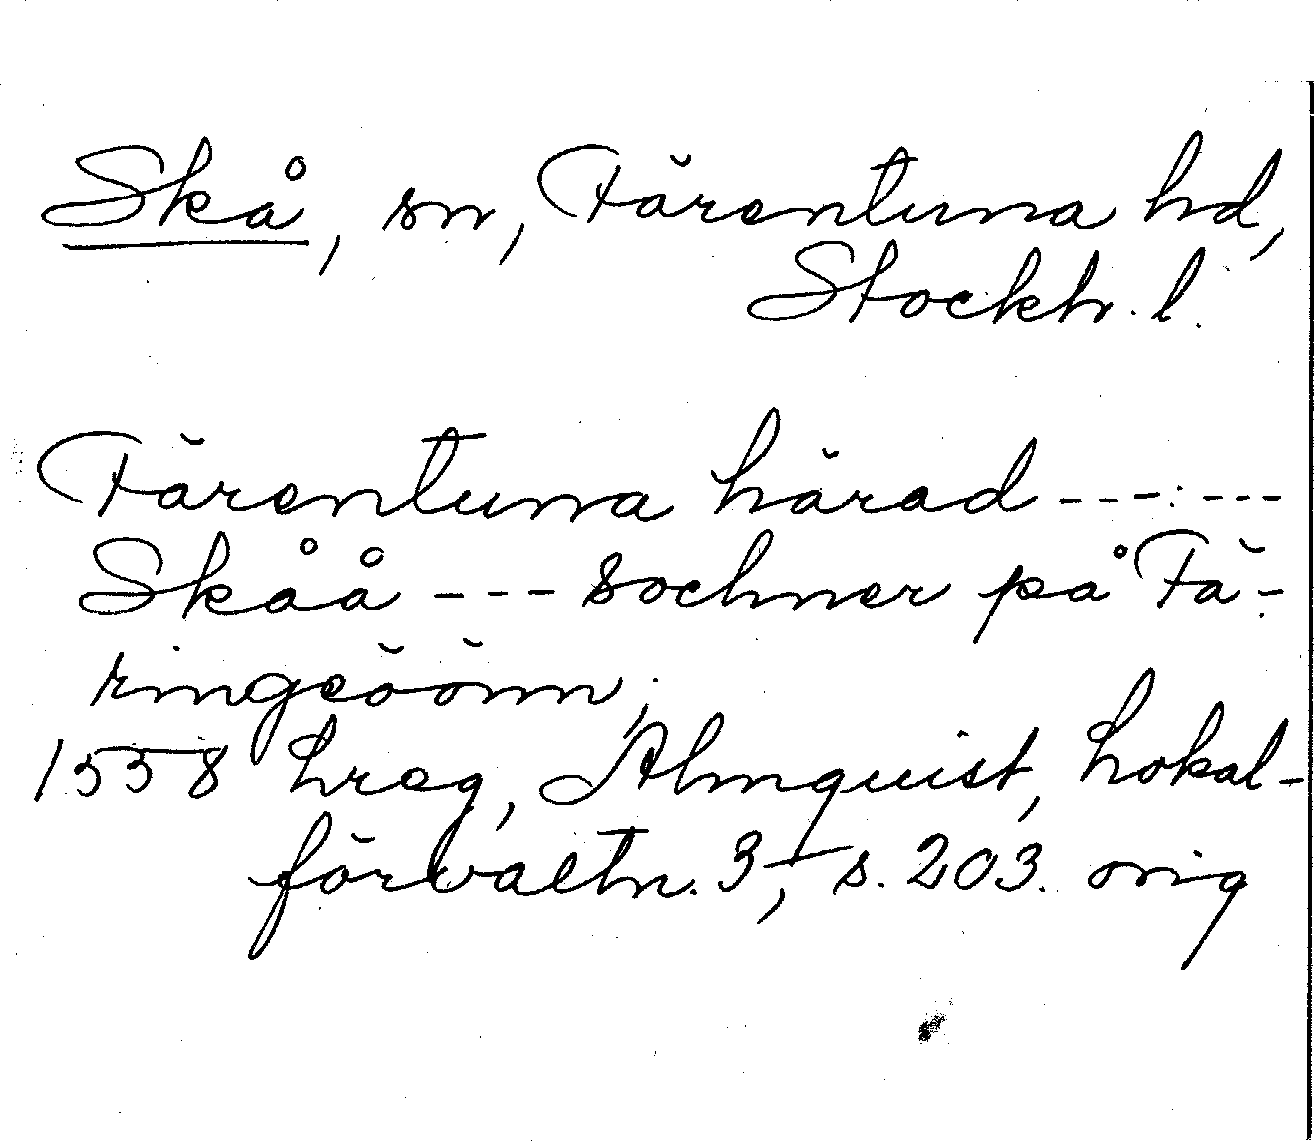 Skå, sn, Färentuna hd,
Stockh. l.
Färentuna härad ------
Skåå --- sochner på Fä-
ringeöönn;
1558 hreg, Almquist, Lokal-
förvaltn. 3, s. 203. orig